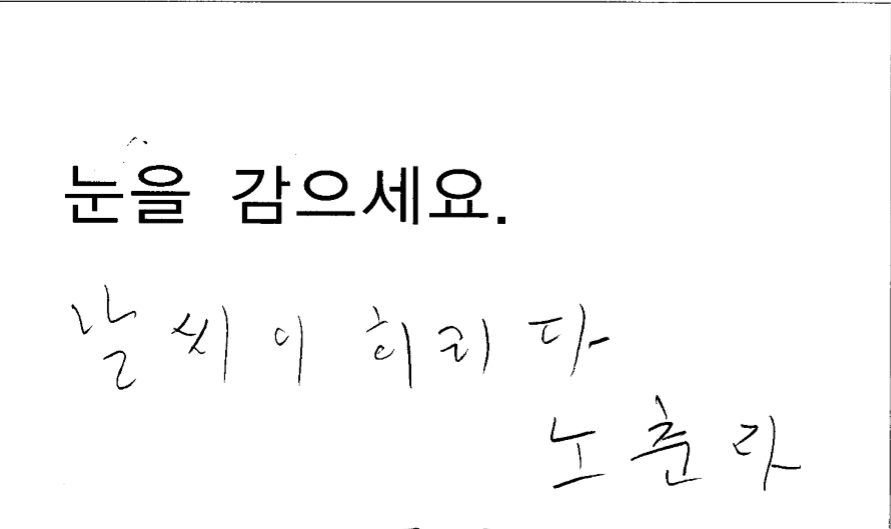 눈을 감으세요.
날씨이 히리다
노춘라